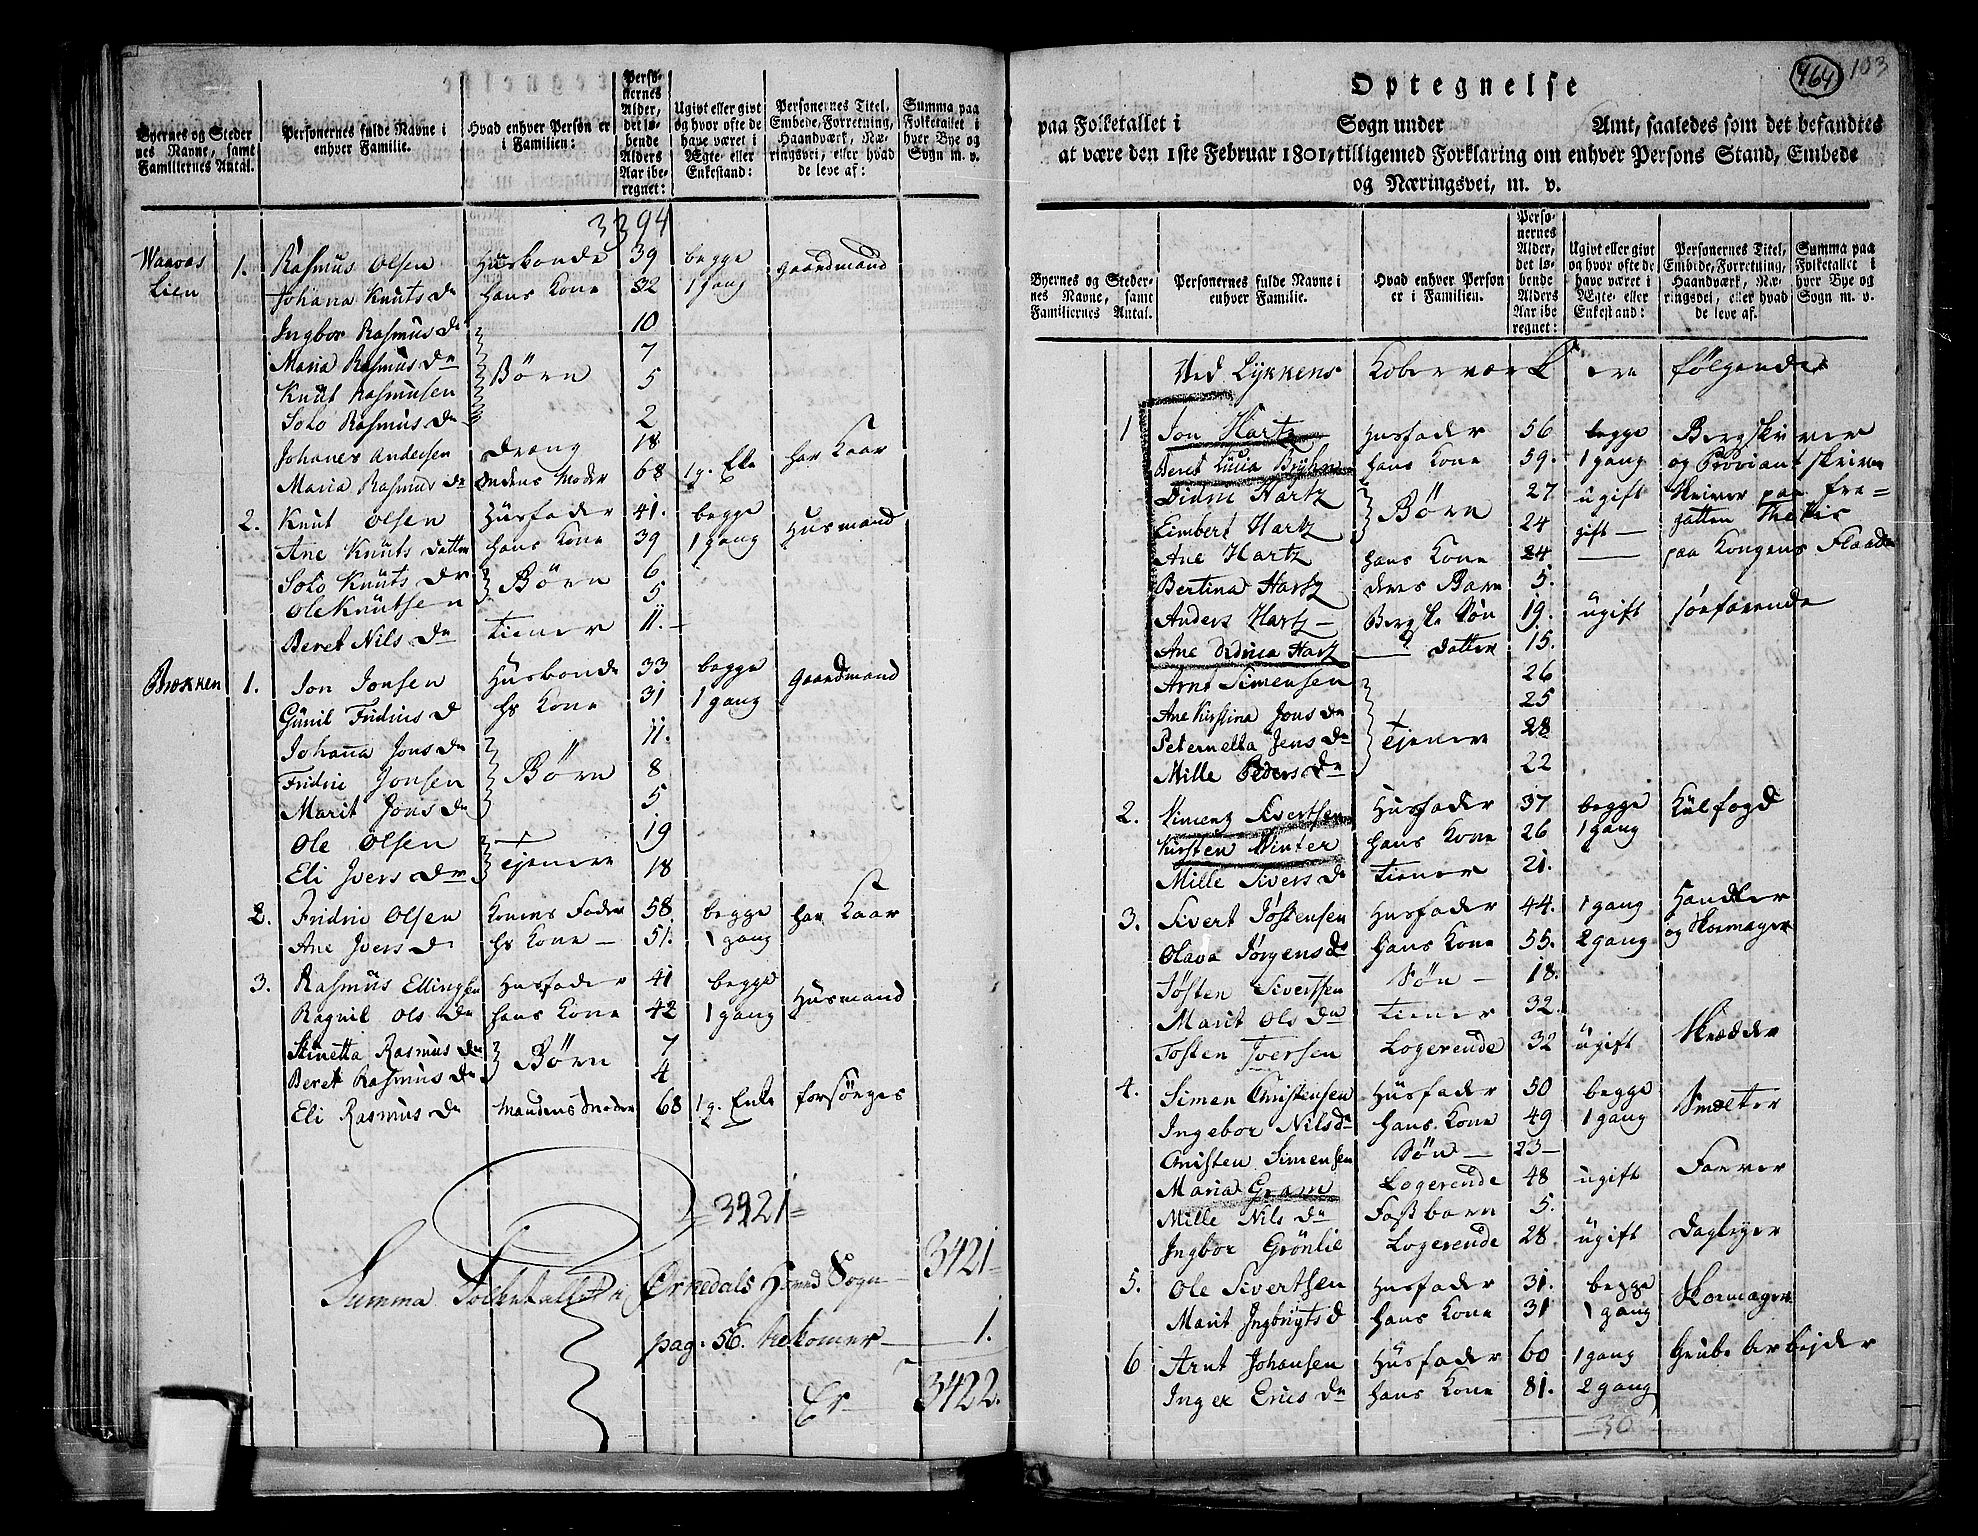 Byernes og Steder
nes Navne, samt
Familiernes Antal.
Personernes fulde Navne i
enhver Familie.
Hvad enhver Person er
i Familien:
Perso-
nernes
Alder,
det lø-
bende
Alders
Aar ibe-
regnet:
Ugivt eller givt
og hvor ofte de
have været i
Ægte- eller
Enkestand:
Personernes Titel,
Embede, Forretning,
Haandværk, Næ-
ringsvej, eller hvad
de leve af:
Summa paa
Folketallet i
hver Bye og
Sogn m. v.
3394
Waavas 1. Rasmus Olsen Husbonde 39 begge gaardmand
Lien Johana Knuts Dr hans Kone 32 1 gang
Ingbor Rasmus Dr 10
Maria Rasmus Dr Børn 7
Knut Rasmusen 5
Solo Rasmus Dr 2
Johanes Andersen Dreng 18
Maria Rasmus Dr Mandens Moder 68 1 g. Eke har Kaar
2. Knut Olsen Husfader 41. begge Husmand
Ane Knuts Datter hans Kone 39 1 gang
Solo Knuts Dr Børn 6
Ole Knutsen 5
Beret Nils Dr tiener 11.
Brekken 1. Jon Jonsen Husbonde 33 begge Gaardmand
Gunil Fridrics D hs Kone 31 1 gang
Johana Jons Dr 11.
Fridric Jonsen Børn 8
Marit Jons Dr 5
Ole Olsen Tjenere 19
Eli Ivers Dr 18
2. Fridric Olsen Konens Fader 58. begge har Kaar
Ane Ivers D hs Kone 51. 1 gang
3. Rasmus Ellingsen Husfader 41 begge Husmand
Ragnil Ols Dr hans Kone 42 1 gang
Stinetta Rasmus Dr Børn 7
Beret Rasmus Dr 4
Eli Rasmus Dr Mandens Moder 68 1 g. Enke forsørges
=3421=
Summa Folketallet i Ørkedals Hoved Sogn 3421
pag. 56. bekomer 1.
Er 3422.
464 103
Optegnelse
paa Folketallet i Sogn under Amt, saaledes som det befandtes
at være den 1ste Februar 1801, tilligemed Forklaring om enhver Persons Stand, Embede
og Næringsvei, m. v.
Byernes og Steder-
nes Navne, samt
Familiernes Antal.
Personernes fulde Navne i
enhver Familie.
Hvad enhver Person
er i Familien.
Perso-
nernes
Alder,
det lø-
bende
Alders
Aar ibe-
regnet:
Ugivt eller givt
og hvor ofte de
have været i
Ægte- eller
Enkestand:
Personernes Titel,
Embede, Forretning,
Haandværk, Næ-
ringsvej, eller hvad
de leve af.
Summa paa
Folketallet i
hver Bye og
Sogn m. v.
Ved Lykkens Kobberværk ere følgende
1 Jon Hartz Husfader 56 begge Bergskriver
Beret Lucia hans Kone 59. 1 gang og Proviantskriver
Didric Hartz Børn 27. ugift Skriver paa Fre=
Eimbert Hartz 24 gift gatten Thetis
Ane Hartz hans Kone 24 paa Kongens Flaade
Bertina Hartz deres Barn 5.
Anders Hartz Bergsks Søn 19. ugift søefarende
Ane Didrica Hartz Datter 15.
Arnt Simensen 26
Ane Kirstina Jons Dr 25
Peternella Jens Dr Tjenere 28
Mille Peders Dr 22
2. Simen Sivertsen Husfader 37 begge Kulfogd
Kirsten Winter hans Kone 26 1 gang
Mille Sivers D tiener 21.
3. Sivert Jøstensen Husfader 44. 1 gang Handler
Olava Jørgens Dr hans Kone 55. 2 gang og Skomager
Jøsten Sivertsen Søn 18.
Marit Ols Dr tiener 32.
Tosten Iversen Logerende 32 ugift Skrædder
4. Simen Christensen Husfader 50 begge Smelter
Ingebor Nilsdr hans Kone 49 1 gang
Cristen Simensen Søn 23
Maria Gram Logerende 48 ugift Farver
Mille Nils Dr Fosbarn 5.
Ingbor Grønlie Logerende 28. ugift Daglejer
5. Ole Sivertsen Husfader 31. begge Skomager
Marit Ingbrigts D hans Kone 31 1 gang
6 Arnt Johansen Husfader 60 1 gang Grube Arbejder
Inger Erics Dr hans Kone 81. 2 gang
30